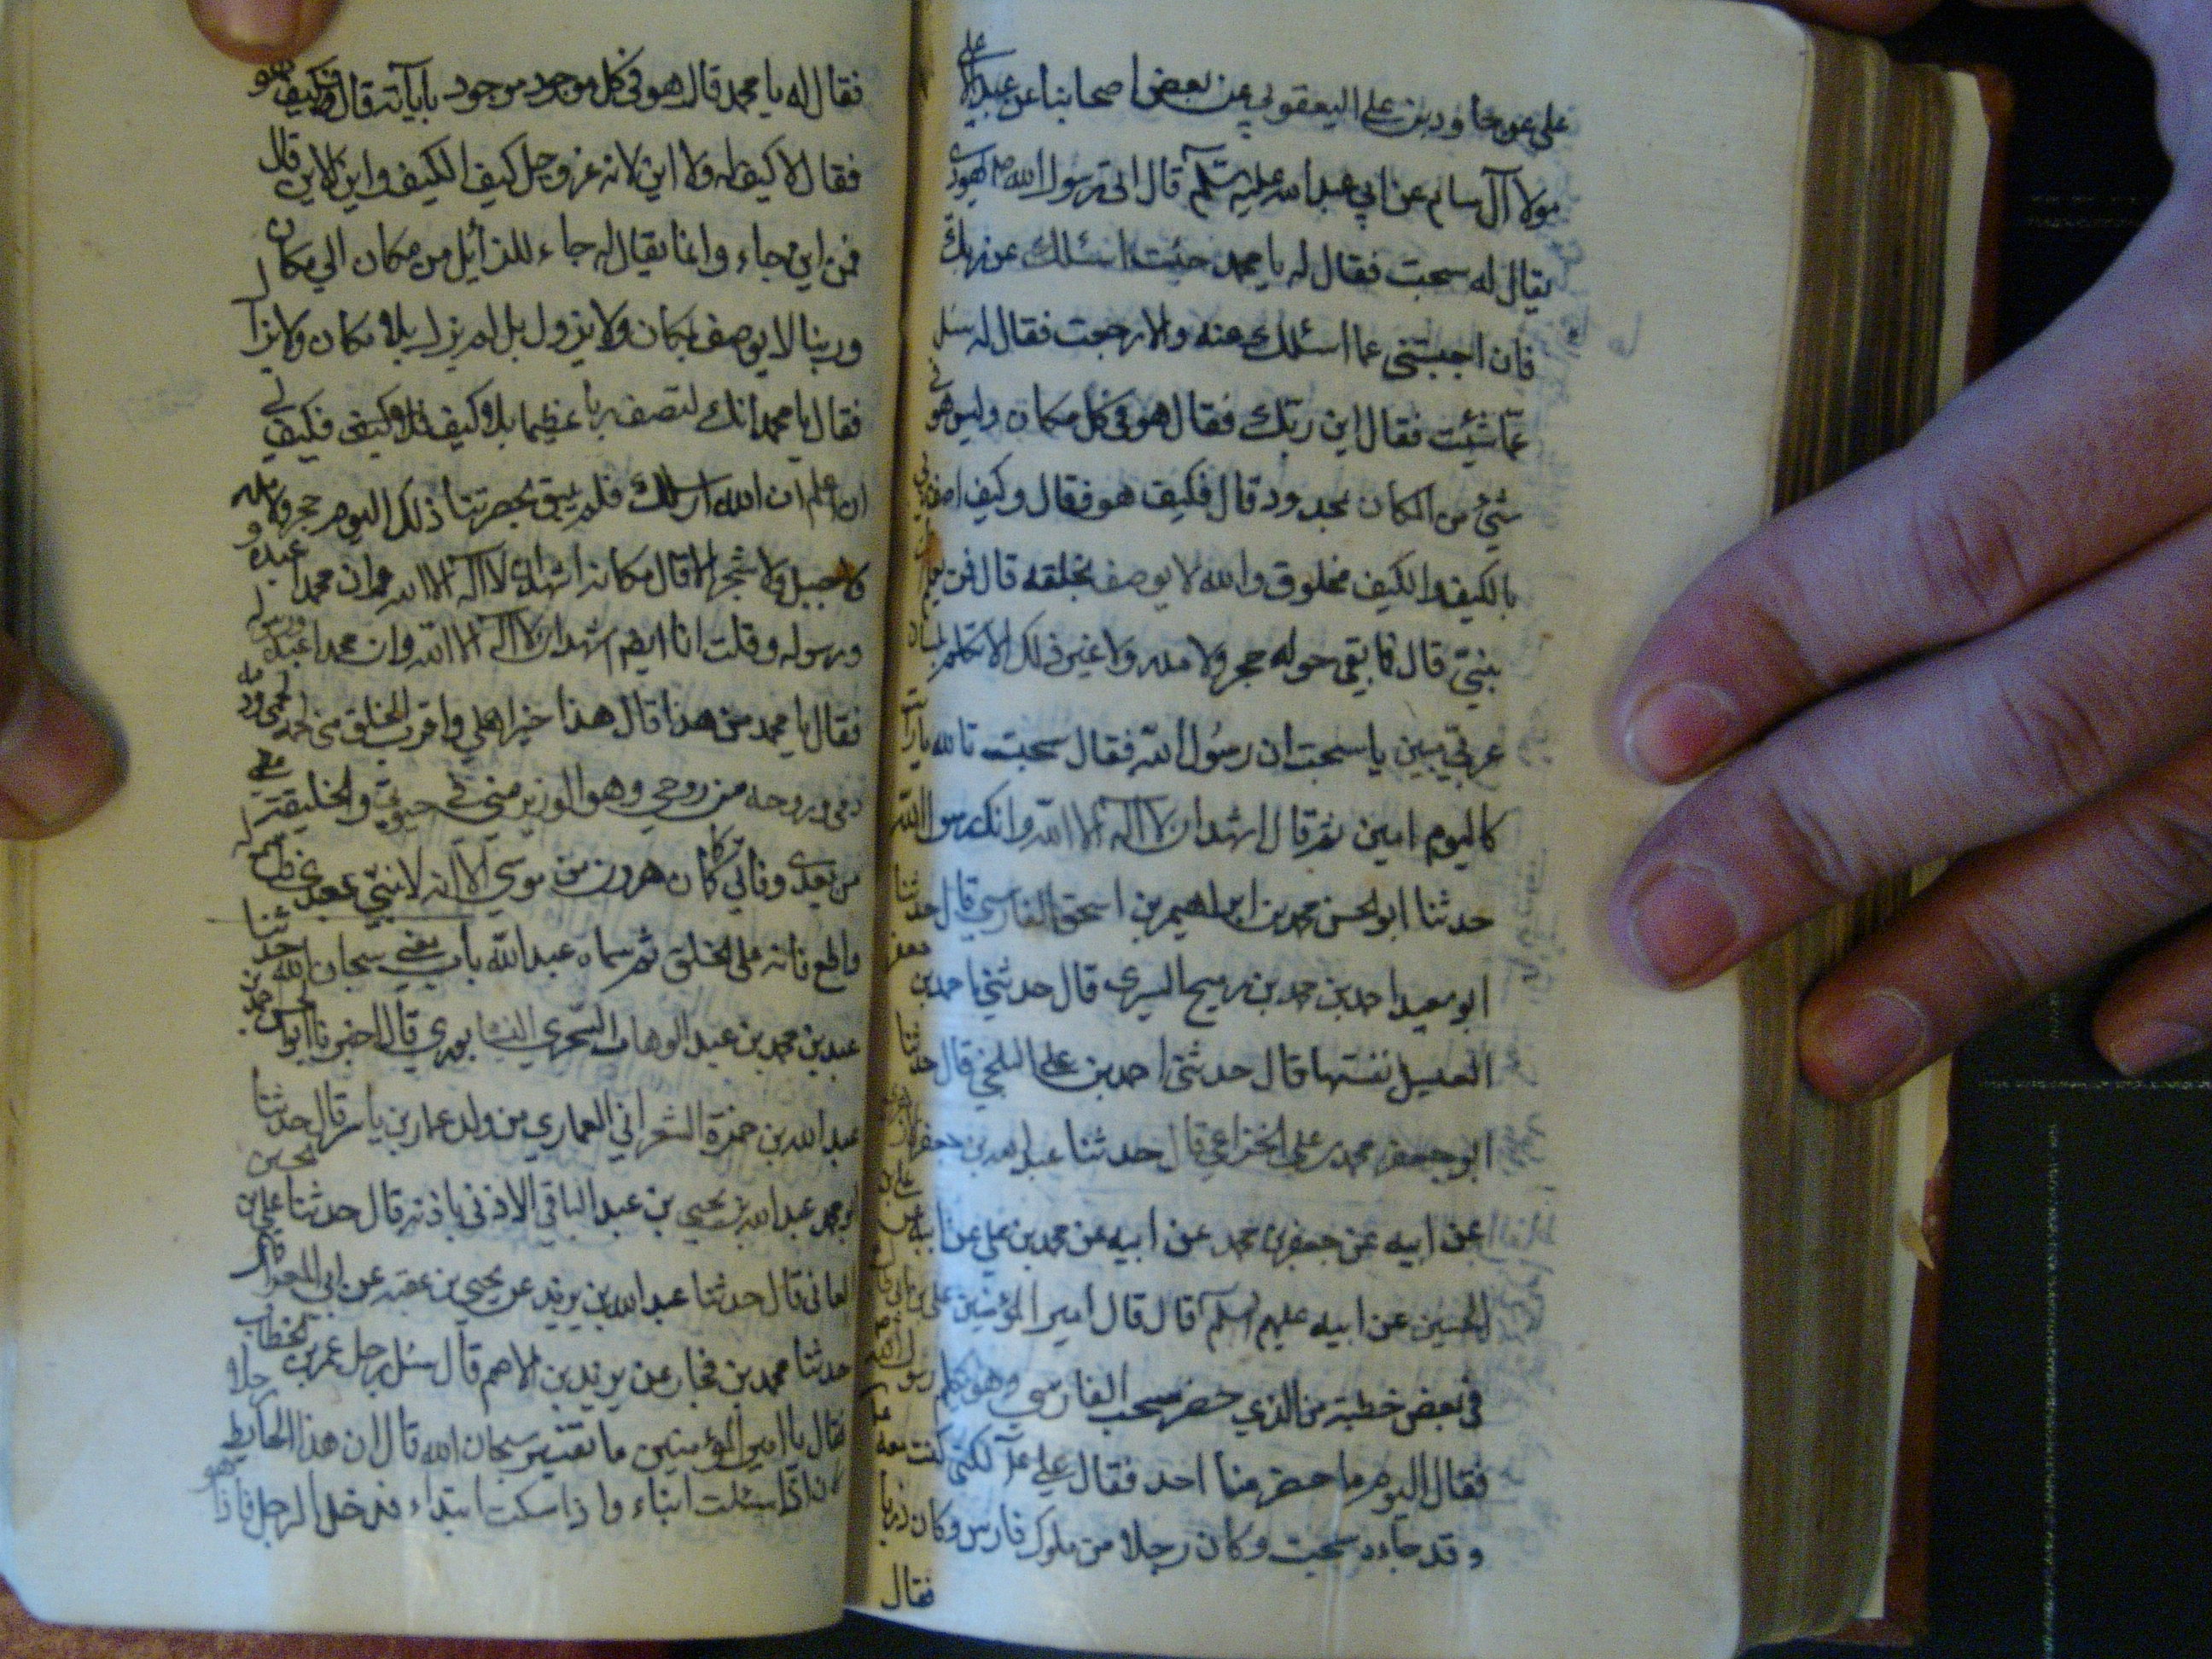 علي عن داود بن علي اليعقوبي عن بعض اصحابنا عن عبد الاعلي
مولا آل سام عن ابي عبد الله عليه سلم قال اتي رسول الله ص يهودي
يقال له سبحت فقال له يا محمد جئت اسئلك عن ربك
فان اجبتني عما اسئلك عنه والا رجعت فقال له سل
عما شئت فقال اين ربك فقال هو في كل مكان وليس هو في
شئ من المكان بمحدود قال فكيف هو فقال وكيف اصف ربي
بالكيف والكيف مخلوق والله لا يوصف بخلقه قال فمن يعلم
نبي قال فما بقي حوله حجر ولا مدر ولا غير ذلك الا تكلم بلسان
عربي مبين يا سبحت ان رسول الله فقال سبحت تالله ما رايت
كاليوم ابين ثم قال اشهد ان لا اله الا الله وانك رسول الله
حدثنا ابو الحسن محمد بن ابراهيم بن اسحق الفارسي قال حدثنا
ابو سعيد احمد بن محمد بن رميح النسوي قال حدثني احمد بن جعفر
العقيلي بقهستان قال حدثني احمد بن علي البلخي قال حدثنا
ابو جعفر محمد بن علي الخزاعي قال حدثنا عبد الله بن جعفر الازهري
عن ابيه عن جعفر بن محمد عن ابيه عن محمد بن علي عن ابيه علي بن
الحسين عن ابيه عليهم السلم قال قال امير المؤمنين علي بن ابي طالب
في بعض خطبه من الذي حضر سبحت الفارسي وهو يكلم رسول الله
فقال القوم ما حضر منا احد فقال علي ع لكني كنت معه
وقد جاءه سبحت وكان رجلا من ملوك فارس وكان ذربا
فقال
فقال له يا محمد قال هو في كل موجود موجود باياته قال فكيف هو
فقال لا كيف له ولا اين لانه عز وجل كيف الكيف واين الاين قال
فمن اين جاء وانما يقال له جاء للزائل من مكان الي مكان
وربنا لا يوصف بمكان ولا يزول بل لم يزل بلا مكان ولا يزال
فقال يا محمد انك لتصف ربا عظيما بلا كيف فكيف لي
ان اعلم ان الله ارسلك فلم يبق بحضرتنا ذلك اليوم حجر ولا مدر
ولا جبل ولا شجر الا قال مكانه اشهد ان لا اله الا الله وان محمدا عبده و
ورسوله وقلت انا ايضا اشهد ان لا اله الا الله وان محمدا عبده ورسوله
فقال يا محمد من هذا قال هذا خير اهلي واقرب الخلق مني لحمه
دمي وروحه من روحي وهو الوزير مني في حيوتي والخليفة
من بعدي وفاتي كما كان هرون من موسي الا انه لا نبي بعدي فاسمع له
واطع فانه علي الخلق ثم سماه عبد الله باب معني سبحان الله حدثنا
عبد الله بن محمد بن عبد الوهاب السجزي النيسابوري قال اخبرنا ابو الحسن احمد بن
عبد الله بن حمزة الشعراني العماري من ولد عمار بن ياسر قال حدثنا
ابو محمد عبد الله بن يحيي بن عبد الباقي الاذني باذنه قال حدثنا علي بن الحسن
المعاني قال حدثنا عبد الله بن يزيد عن يحيي بن عقبة عن ابي العيزار
حدثنا محمد بن حجار عن يزيد بن الاصم قال سئل رجل عمر بن الخطاب
فقال يا امير المؤمنين ما تفسير سبحان الله قال ان في هذا الحايط رجلا
كان اذا سئلت انباء واذا سكت ابتداء فدخل الرجل فاذا هو